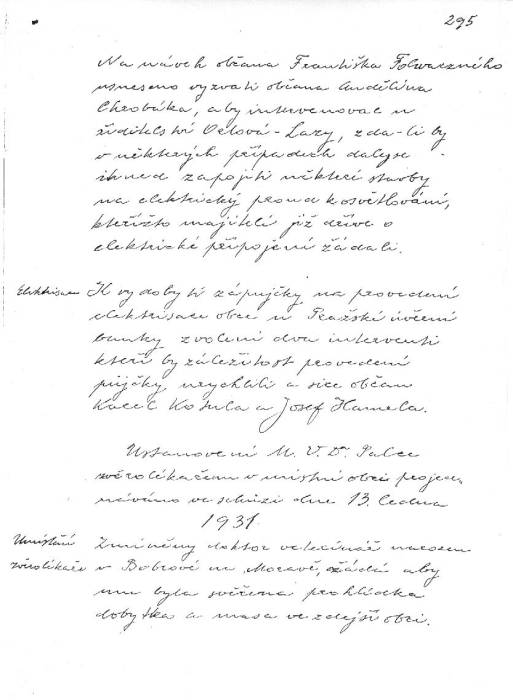 295
Na návrh občana Františka Folwarczného
usneseno vyzvati občana Andělína
Chrobáka, aby intervenoval u
ředitelství Orlová-Lazy, zda-li by
v některých případech daly se
ihned zapojiti některé stavby
na elektrický proud k osvětlování,
kteřížto majitelé již dříve o
elektrické připojení žádali.
Elektrisace K vydobytí zápujčky na provedení
elektrisace obce u Pražské úvěrní
banky zvoleni dva interventi
kteří by záležitost provedení
půjčky urychlili a sice občan
Karel Kožula a Josef Hamela.
Ustanovení M. V. Dr. Palec
zvěrolékařem v místní obci projed-
náváno ve schůzi dne 13. ledna
1931.
Umístění Zmíněný doktor veterinář narozen
zvěrolékaře v Bobrové na Moravě, žádá aby
mu byla svěřena prohlídka
dobytka a masa ve zdejší obci.